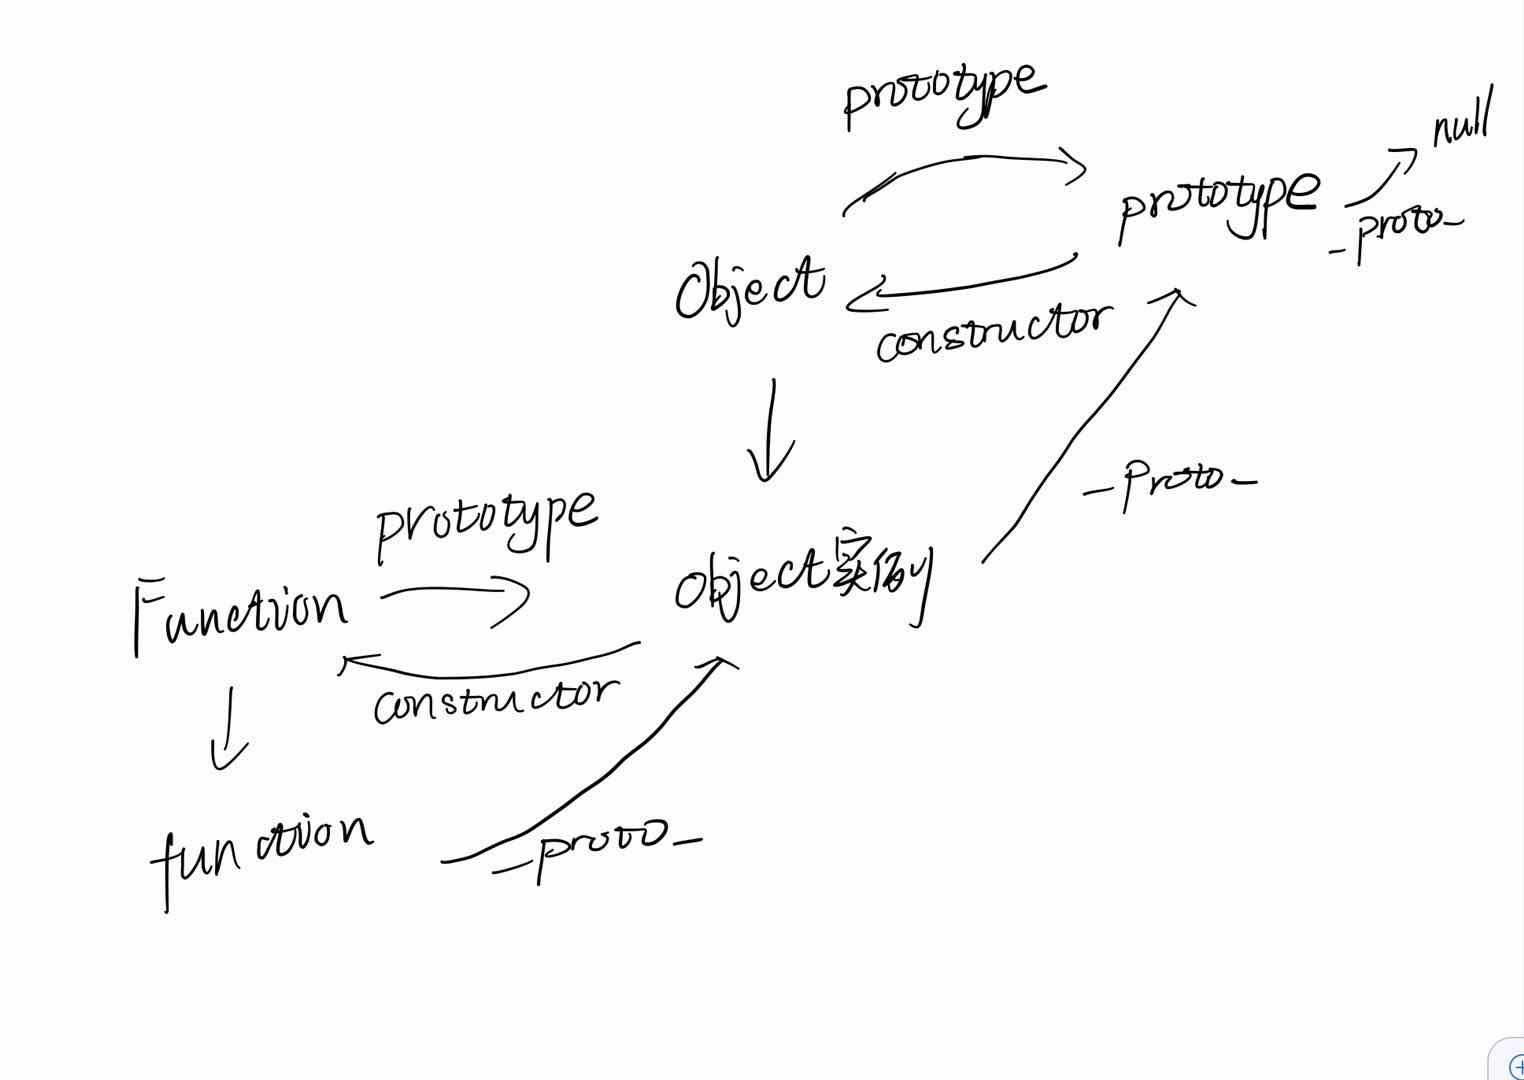 prototype
null
prototype
_proto_
Object
constructor
_Proto_
prototype
Object实例
Function
constructor
function
_proto_